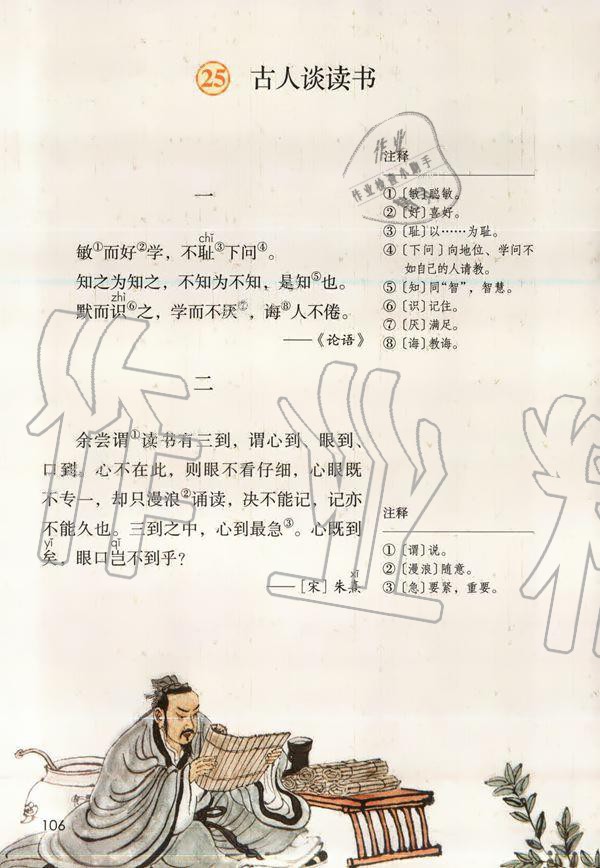 25 古人谈读书
一
敏①而好②学，不耻③下问④。
chǐ
知之为知之，不知为不知，是知⑤也。
zhì
默而识⑥之，学而不厌⑦，诲⑧人不倦。
——《论语》
注释
①〔敏〕聪敏。
②〔好〕喜好。
③〔耻〕以……为耻。
④〔下问〕向地位、学问不
如自己的人请教。
⑤〔知〕同“智”，智慧。
⑥〔识〕记住。
⑦〔厌〕满足。
⑧〔诲〕教诲。
二
余尝谓①读书有三到，谓心到、眼到、
口到。心不在此，则眼不看仔细，心眼既
不专一，却只漫浪②诵读，决不能记，记亦
不能久也。三到之中，心到最急③。心既到
yǐ qǐ
矣，眼口岂不到乎？
xī
——［宋］朱熹
注释
①〔谓〕说。
②〔漫浪〕随意。
③〔急〕要紧，重要。
106
作业
作业检查小助手
作业精